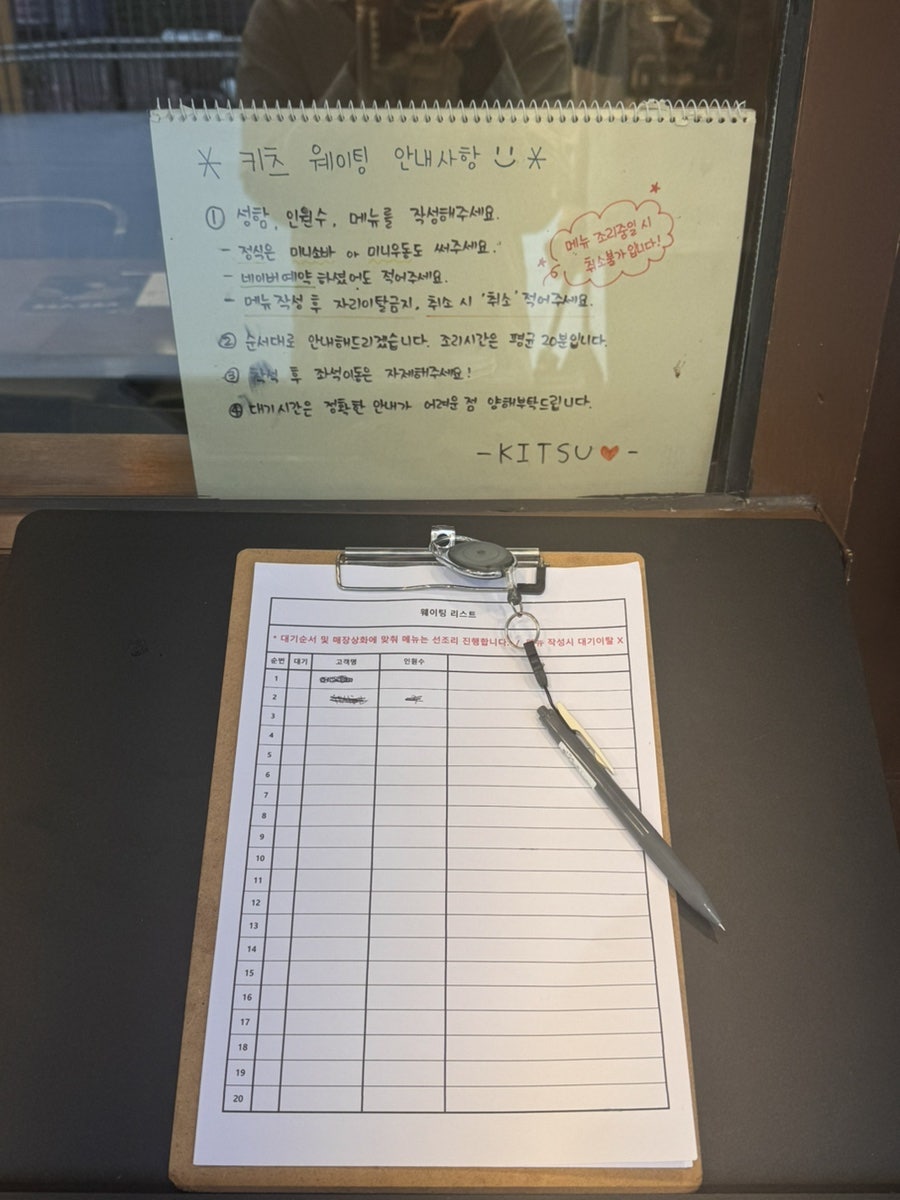 * 키츠 웨이팅 안내사항 *
① 성함, 인원수, 메뉴를 작성해주세요.
- 정식은 미니소바 or 미니우동도 써주세요.
- 네이버예약 하셨어도 적어주세요.
- 메뉴작성 후 자리이탈금지, 취소 시 '취소' 적어주세요.
메뉴 조리중일 시
취소불가입니다!
② 순서대로 안내해드리겠습니다. 조리시간은 평균 20분입니다.
③ 착석 후 좌석이동은 자제해주세요!
④ 대기시간은 정확한 안내가 어려운 점 양해부탁드립니다.
-KITSU♥-
웨이팅 리스트
* 대기순서 및 매장상화에 맞춰 메뉴는 선조리 진행합니다. 작성시 대기이탈 X
순번 대기 고객명 인원수
1
2
3
4
5
6
7
8
9
10
11
12
13
14
15
16
17
18
19
20